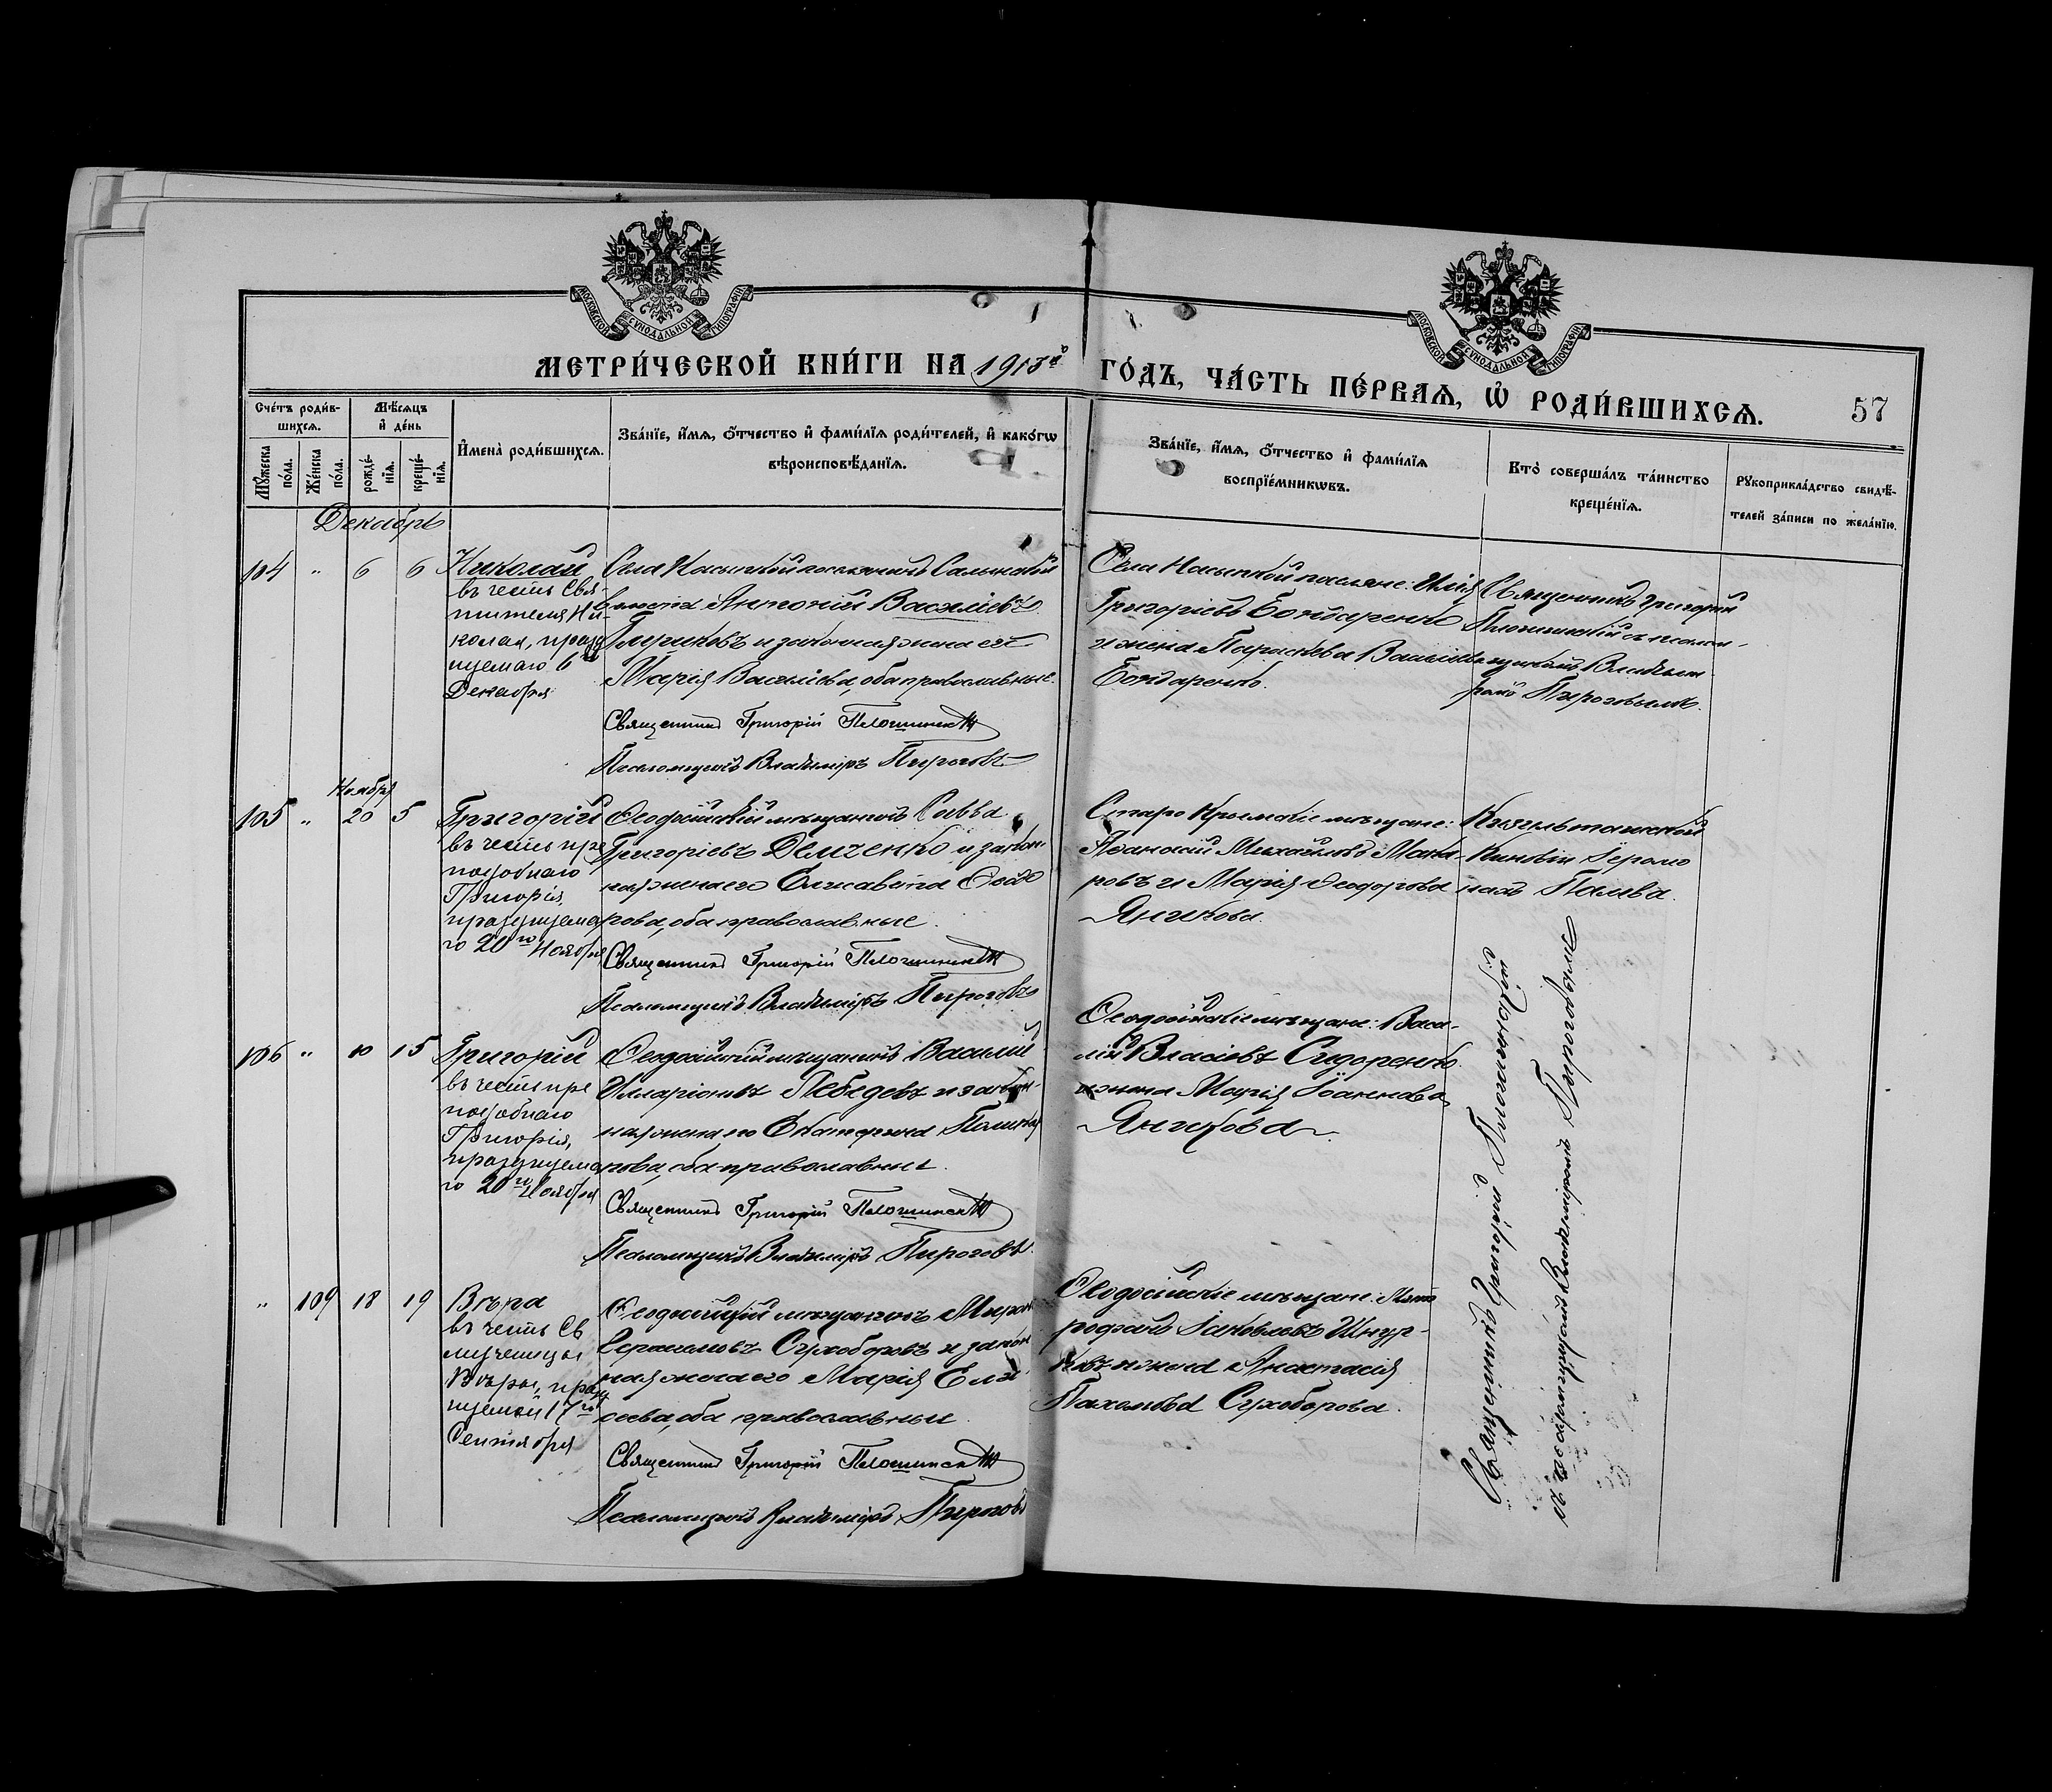 МОСКОВСКОЙ СѴНОДАЛЬНОЙ ТИПОГРАФІИ
МОСКОВСКОЙ СѴНОДАЛЬНОЙ ТИПОГРАФІИ
МЕТРИ́ЧЕСКОЙ КНИ́ГИ НА 1913й ГО́ДЪ, ЧА́СТЬ ПЕ́РВАѦ, Ѡ҆ РОДИ́ВШИХСѦ.
57
Сче́тъ роди́в-
шихсѧ.
Мꙋ́жеска по́ла.
Же́нска по́ла.
Мѣ́сѧцъ
и҆ де́нь
рожде́-
нїѧ.
креще́-
нїѧ.
И҆мена̀ роди́вшихсѧ.
Зва́нїе, и҆́мѧ, ѻ҆́тчество и҆ фами́лїѧ роди́телей, и҆ како́гѡ
вѣроисповѣ́данїѧ.
Зва́нїе, и҆́мѧ, ѻ҆́тчество и҆ фами́лїѧ
воспрїе́мникѡвъ.
Кто̀ соверша́лъ та́инство
креще́нїѧ.
Рꙋкоприкла́дство свидѣ́-
телей за́писи по жела́нїю.
Декабрь
104 " 6 6
Николай
въ честь Свя-
тителя Ни-
колая, празд
нуемаго 6го
Декабря
Села Насыпкой поселянинъ
волости Антоній Васильевъ
и законная жена его
Марія Васильева, оба православные.
Священникъ Григорій
Псаломщикъ Владиміръ Пироговъ
Села Насыпкой поселяне: Илія
Григорьевъ Бондаренко
и жена Параскева Васильева
Бондаренко.
Священникъ Григорій
съ псалом-
щикомъ Владими-
ромъ Пироговымъ.
Ноября
105 " 20 5
Григорій
въ честь пре
подобнаго
Григорія,
празднуема
го 20го Ноября
Ѳеодосійскій мѣщанинъ Савва
Григоріевъ Демченко и закон-
ная жена его Елисавета Ѳеодо
рова, оба православные.
Священникъ Григорій
Псаломщикъ Владиміръ Пироговъ
Старо Крымскіе мѣщане:
Аѳанасій Михайловъ Мака-
ровъ и Марія Ѳеодорова
Янчкова.
Киновіи Іеромо
нахъ
106 " 10 15
Григорій
въ честь пре
подобнаго
Григорія,
празднуема
го 20го Ноября
Ѳеодосійскій мѣщанинъ Василій
Илларіоновъ Лебедевъ и закон-
ная жена его Екатерина Поликар
пова, оба православные.
Священникъ Григорій
Псаломщикъ Владиміръ Пироговъ.
Ѳеодосійскіе мѣщане: Васи-
лій Власіевъ Сидоренко
и жена Марія Іоаннова
Янчкова
" 109 18 19
Вѣра
въ честь Св
мученицы
Вѣры, празд
нуемой 17го
Сентября
Ѳеодосійскій мѣщанинъ Миронъ
Сухоборовъ и закон
ная жена его Марія Ели-
сеева, оба православные.
Священникъ Григорій
Псаломщикъ Владиміръ Пироговъ
Ѳеодосійскіе мѣщане: Мит
рофанъ Іаковлевъ
и жена Анастасія
Пахомова Сухоборова.
Священникъ Григорій
съ псаломщикомъ Владиміромъ Пироговымъ